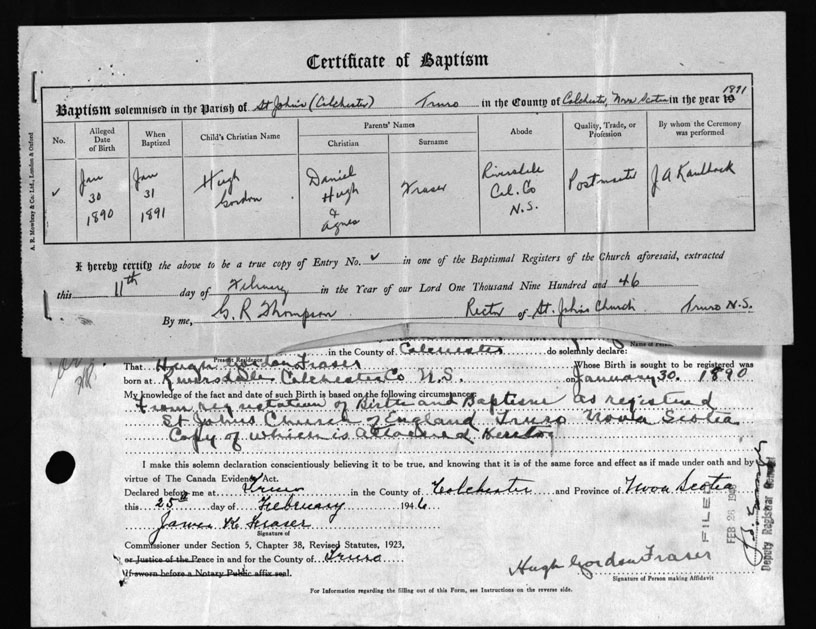 Certificate of Baptism
1891
Baptism solemnised in the Parish of St John's (Colchester) Truro in the County of Colchester, Nova Scotia in the year 19
No. Alleged Date of Birth When Baptized Child's Christian Name Parents' Names Christian Surname Abode Quality, Trade, or Profession By whom the Ceremony was performed
✓ Jan 30 1890 Jan 31 1891 Hugh Gordon Daniel Hugh & Agnes Fraser Riversdale Col. Co N.S. Postmaster J A Kaulback
A. R. Mowbray & Co. Ltd., London & Oxford
I hereby certify the above to be a true copy of Entry No. ✓ in one of the Baptismal Registers of the Church aforesaid, extracted
this 11th day of February in the Year of our Lord One Thousand Nine Hundred and 46
By me, G. R Thompson Rector of St. John's Church Truro N.S.
Present Residence in the County of Colchester do solemnly declare:
That Hugh Gordon Fraser Whose Birth is sought to be registered was
born at Riversdale Colchester Co N.S. on January 30. 1890
My knowledge of the fact and date of such Birth is based on the following circumstances:
From registration of Birth and Baptism as registered
St Johns Church of England Truro Nova Scotia
Copy of which is attached hereto
I make this solemn declaration conscientiously believing it to be true, and knowing that it is of the same force and effect as if made under oath and by
virtue of The Canada Evidence Act.
Declared before me at Truro in the County of Colchester and Province of Nova Scotia
this 25th day of February 1946
James K. Fraser
Signature of
Commissioner under Section 5, Chapter 38, Revised Statutes, 1923,
or Justice of the Peace in and for the County of Truro
If sworn before a Notary Public affix seal.
Hugh Gordon Fraser
Signature of Person making Affidavit
For Information regarding the filling out of this Form, see Instructions on the reverse side.
FILED
FEB 26
Deputy Registrar General